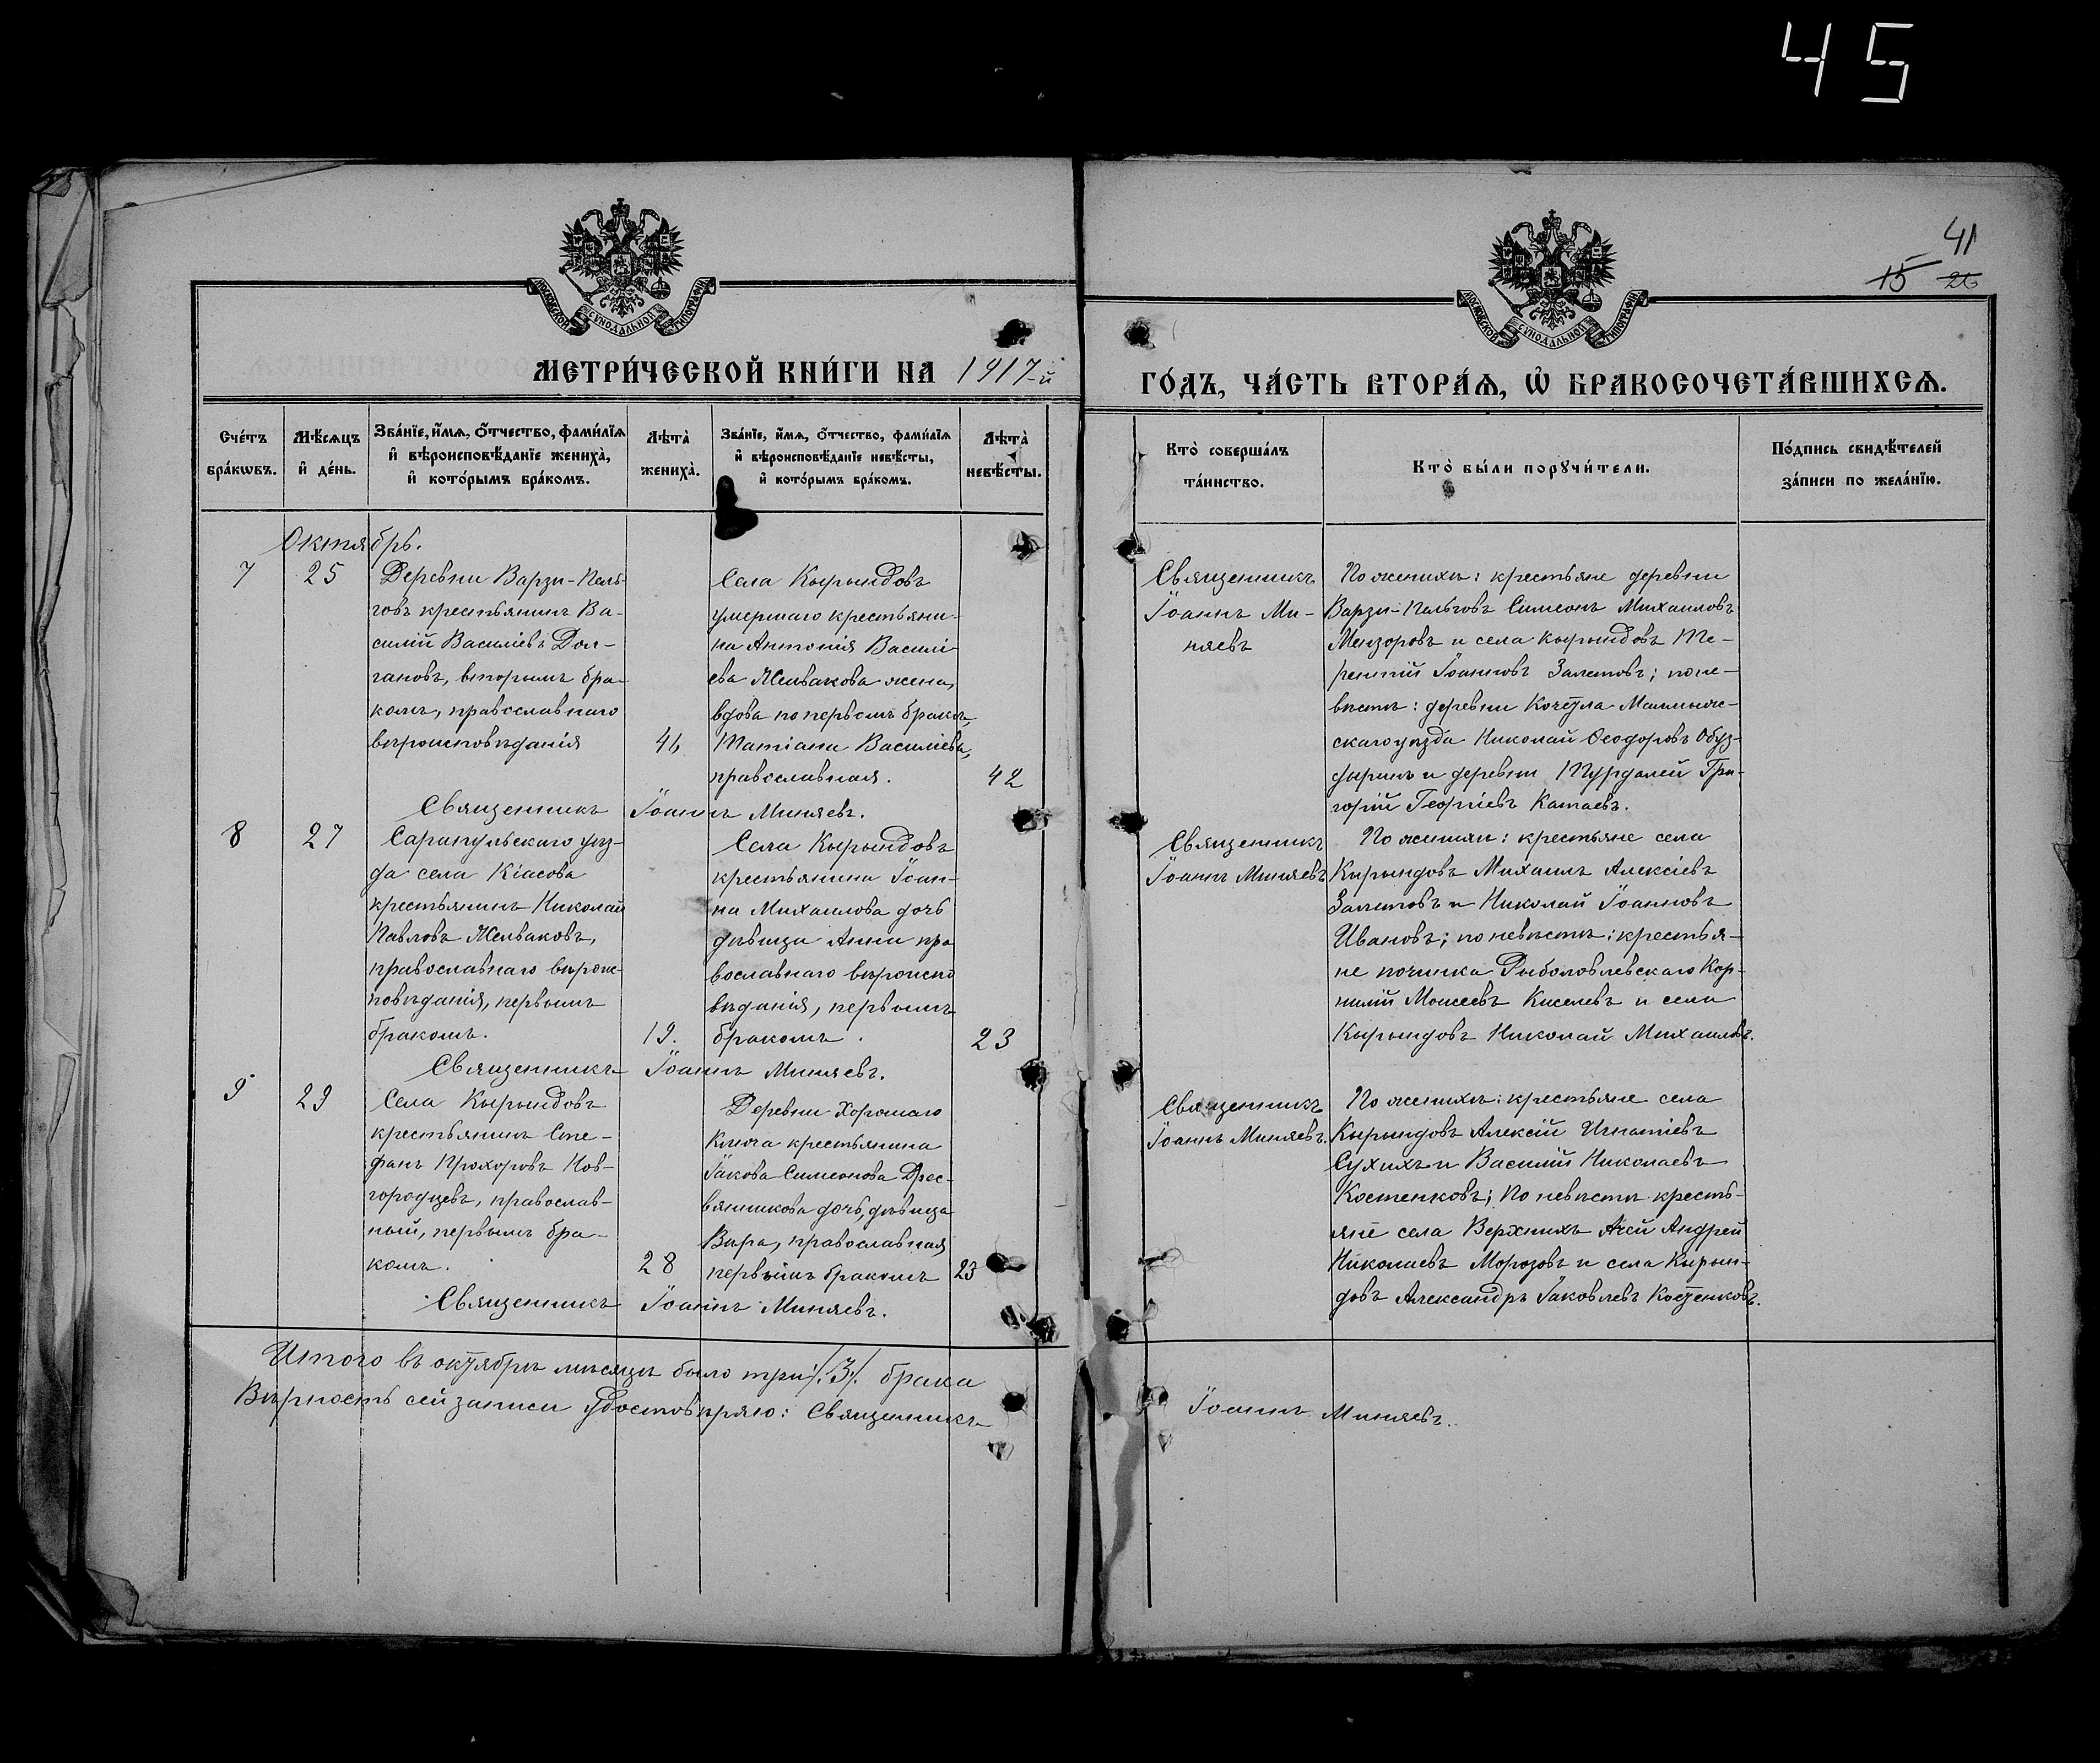 45
41
15 26
МОСКОВСКОЙ СѴНОДАЛЬНОЙ ТИПОГРАФІИ
МОСКОВСКОЙ СѴНОДАЛЬНОЙ ТИПОГРАФІИ
МЕТРИ́ЧЕСКОЙ КНИ́ГИ НА 1917-й
ГО́ДЪ, ЧА́СТЬ ВТОРА́Я, Ѡ БРАКОСОЧЕТА́ВШИХСЯ.
Сче́тъ бра́кѡвъ.
Мѣ́сяцъ и де́нь.
Зва́нїе, и́мя, о́тчество, фами́лїя и вѣроисповѣ́данїе жениха̀, и кото́рымъ бра́комъ.
Лѣта̀ жениха̀.
Зва́нїе, и́мя, о́тчество, фами́лїя и вѣроисповѣ́данїе невѣ́сты, и кото́рымъ бра́комъ.
Лѣта̀ невѣ́сты.
Кто̀ соверша́лъ та́инство.
Кто̀ бы́ли порꙋчи́тели.
По́дпись свидѣ́телей за́писи по жела́нїю.
Октябрь.
7
25
Деревни Варзи-Пель-
говъ крестьянинъ Ва-
силій Василіевъ Дол-
гановъ, вторымъ бра-
комъ, православнаго
вѣроисповѣданія
46
Села Кырындовъ
умершаго крестьяни-
на Антонія Василі-
ева Желвакова жена,
вдова по первомъ бракѣ,
Татіана Василіева,
православная.
42
Священникъ Іоаннъ Миняевъ.
Священникъ
Іоаннъ Ми-
няевъ
По женихѣ: крестьяне деревни
Варзи-Пельговъ Симеонъ Михаиловъ
и села Кырындовъ Те-
рентій Іоанновъ Залетовъ; по не-
вѣстѣ: деревни Малмыж-
скаго уѣзда Николай Ѳеодоровъ
и деревни Гри-
горій Георгіевъ Катаевъ.
8
27
Сарапульскаго уѣз-
да села Кіасова
крестьянинъ Николай
Павловъ Желваковъ,
православнаго вѣроис-
повѣданія, первымъ
бракомъ.
19.
Села Кырындовъ
крестьянина Іоан-
на Михаилова дочь
дѣвица Анна пра
вославнаго вѣроиспо
вѣданія, первымъ
бракомъ.
23
Священникъ Іоаннъ Миняевъ.
Священникъ
Іоаннъ Миняевъ
По женихѣ: крестьяне села
Кырындовъ Михаилъ Алексіевъ
Залетовъ и Николай Іоанновъ
Ивановъ; по невѣстѣ: крестья-
не починка Рыболовлевскаго Кор-
нилій Моисеевъ Киселевъ и села
Кырындовъ Николай Михаиловъ.
9
29
Села Кырындовъ
крестьянинъ Сте-
фанъ Прохоровъ Нов-
городцевъ, православ-
ный, первымъ бра-
комъ.
28
Деревни Хорошаго
Ключа крестьянина
Іакова Симеонова Дрес-
вянникова дочь, дѣвица
Вѣра, православная
первымъ бракомъ
23
Священникъ Іоаннъ Миняевъ.
Священникъ
Іоаннъ Миняевъ.
По женихѣ: крестьяне села
Кырындовъ Алексій Игнатіевъ
Сухихъ и Василій Николаевъ
Костенковъ; По невѣстѣ кресть-
яне села Верхнихъ Андрей
Николаевъ Морозовъ и села Кырын-
довъ Александръ Іаковлевъ Костенковъ.
Итого въ октябрѣ мѣсяцѣ было три /.3/. брака
Вѣрность сей записи удостовѣряю: Священникъ
Іоаннъ Миняевъ.